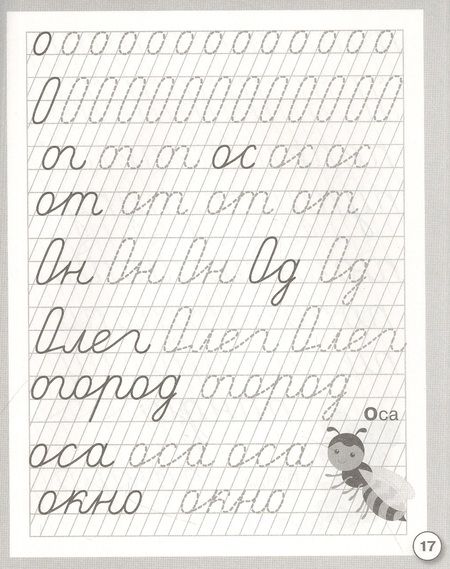 о о о о о о о о о о о о о
О О О О О О О О О О О О О О О О О
ог ог ог ос ос ос
от от от от
Он Он Он Од Од
Олег Олег Олег
огород огород
Оса
оса оса оса
окно окно
17